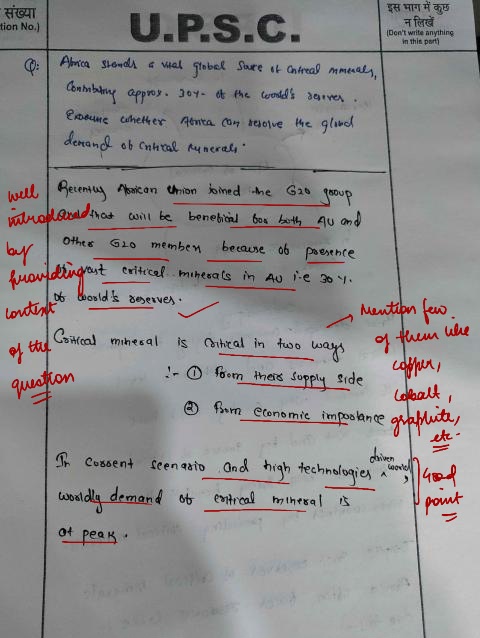 संख्या
tion No.)
U.P.S.C.
इस भाग में कुछ
न लिखें
(Don't write anything
in this part)
Q: Africa stands a vital global Source of Critical minerals,
Contributing approx. 30% of the world's reserves.
Examine whether Africa can resolve the global
demand of Critical Minerals.
Recently African Union joined the G20 group
and that will be benefical for both AU and
other G20 members because of presence
of vast critical minerals in AU i.e 30%
of world's reserves.
well
introduced
by
providing
context
of the
question
Critical mineral is critical in two ways
:- ① From their supply side
② From economic importance
Mention few
of them like
copper,
cobalt,
graphite,
etc.
In corrent scenario and high technologies driven world,
worldly demand of critical mineral is
at peak.
Good
point